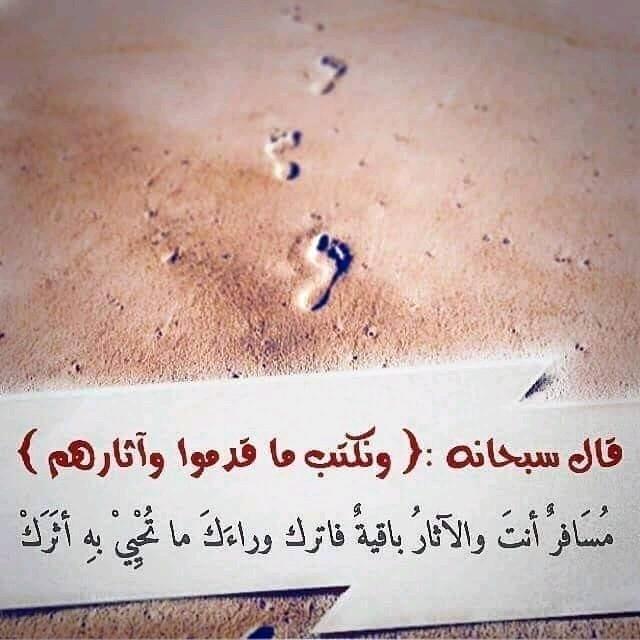 قال سبحانه :{ ونكتب ما قدموا وآثارهم }
مُسَافرٌ أنتَ والآثارُ باقيةٌ فاترك وراءَكَ ما تُحْيِيْ بهِ أثَرَكْ